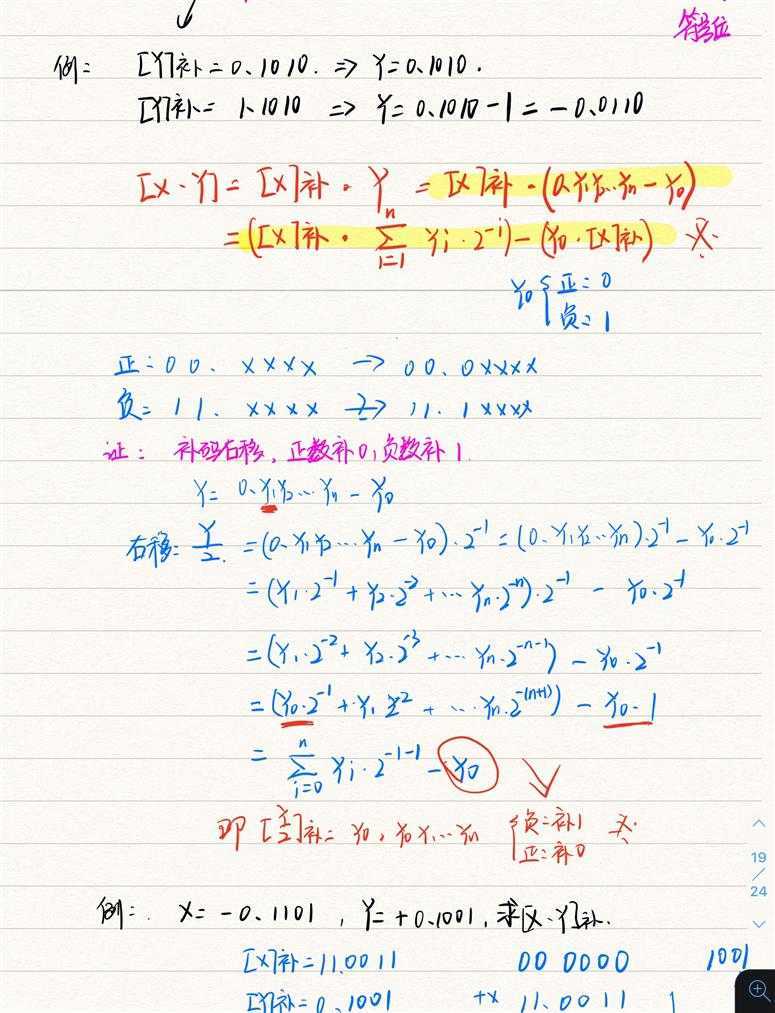 符号位
例： [Y]补=0.1010. => Y=0.1010.
[Y]补= 1.1010 => Y=0.1010-1=-0.0110
[X·Y]=[X]补·Y=[X]补·(0.y₁y₂…yₙ-y₀)
=([X]补·∑ⁿᵢ₌₁ yᵢ·2⁻ⁱ)-(y₀·[X]补)
y₀{正=0
负=1
正=00.xxxx → 00.0xxxx
负=11.xxxx → 11.1xxxx
证：补码右移，正数补0，负数补1.
Y=0.y₁y₂…yₙ-y₀
右移：Y/2=(0.y₁y₂…yₙ-y₀)·2⁻¹=(0.y₁y₂…yₙ)·2⁻¹-y₀·2⁻¹
=(y₁·2⁻¹+y₂·2⁻²+…yₙ·2⁻ⁿ)·2⁻¹-y₀·2⁻¹
=(y₁·2⁻²+y₂·2⁻³+…yₙ·2⁻ⁿ⁻¹)-y₀·2⁻¹
=(y₀·2⁻¹+y₁2⁻²+…yₙ·2⁻⁽ⁿ⁺¹⁾)-y₀·1
=∑ⁿᵢ₌₀ yᵢ·2⁻ⁱ⁻¹-y₀
即[Y/2]补=y₀.y₀y₁…yₙ {负=补1
正=补0
19
/
24
例：X=-0.1101，Y=+0.1001，求[X·Y]补.
[X]补=11.0011 00 0000 1001
[Y]补=0.1001 +x 11.0011 1